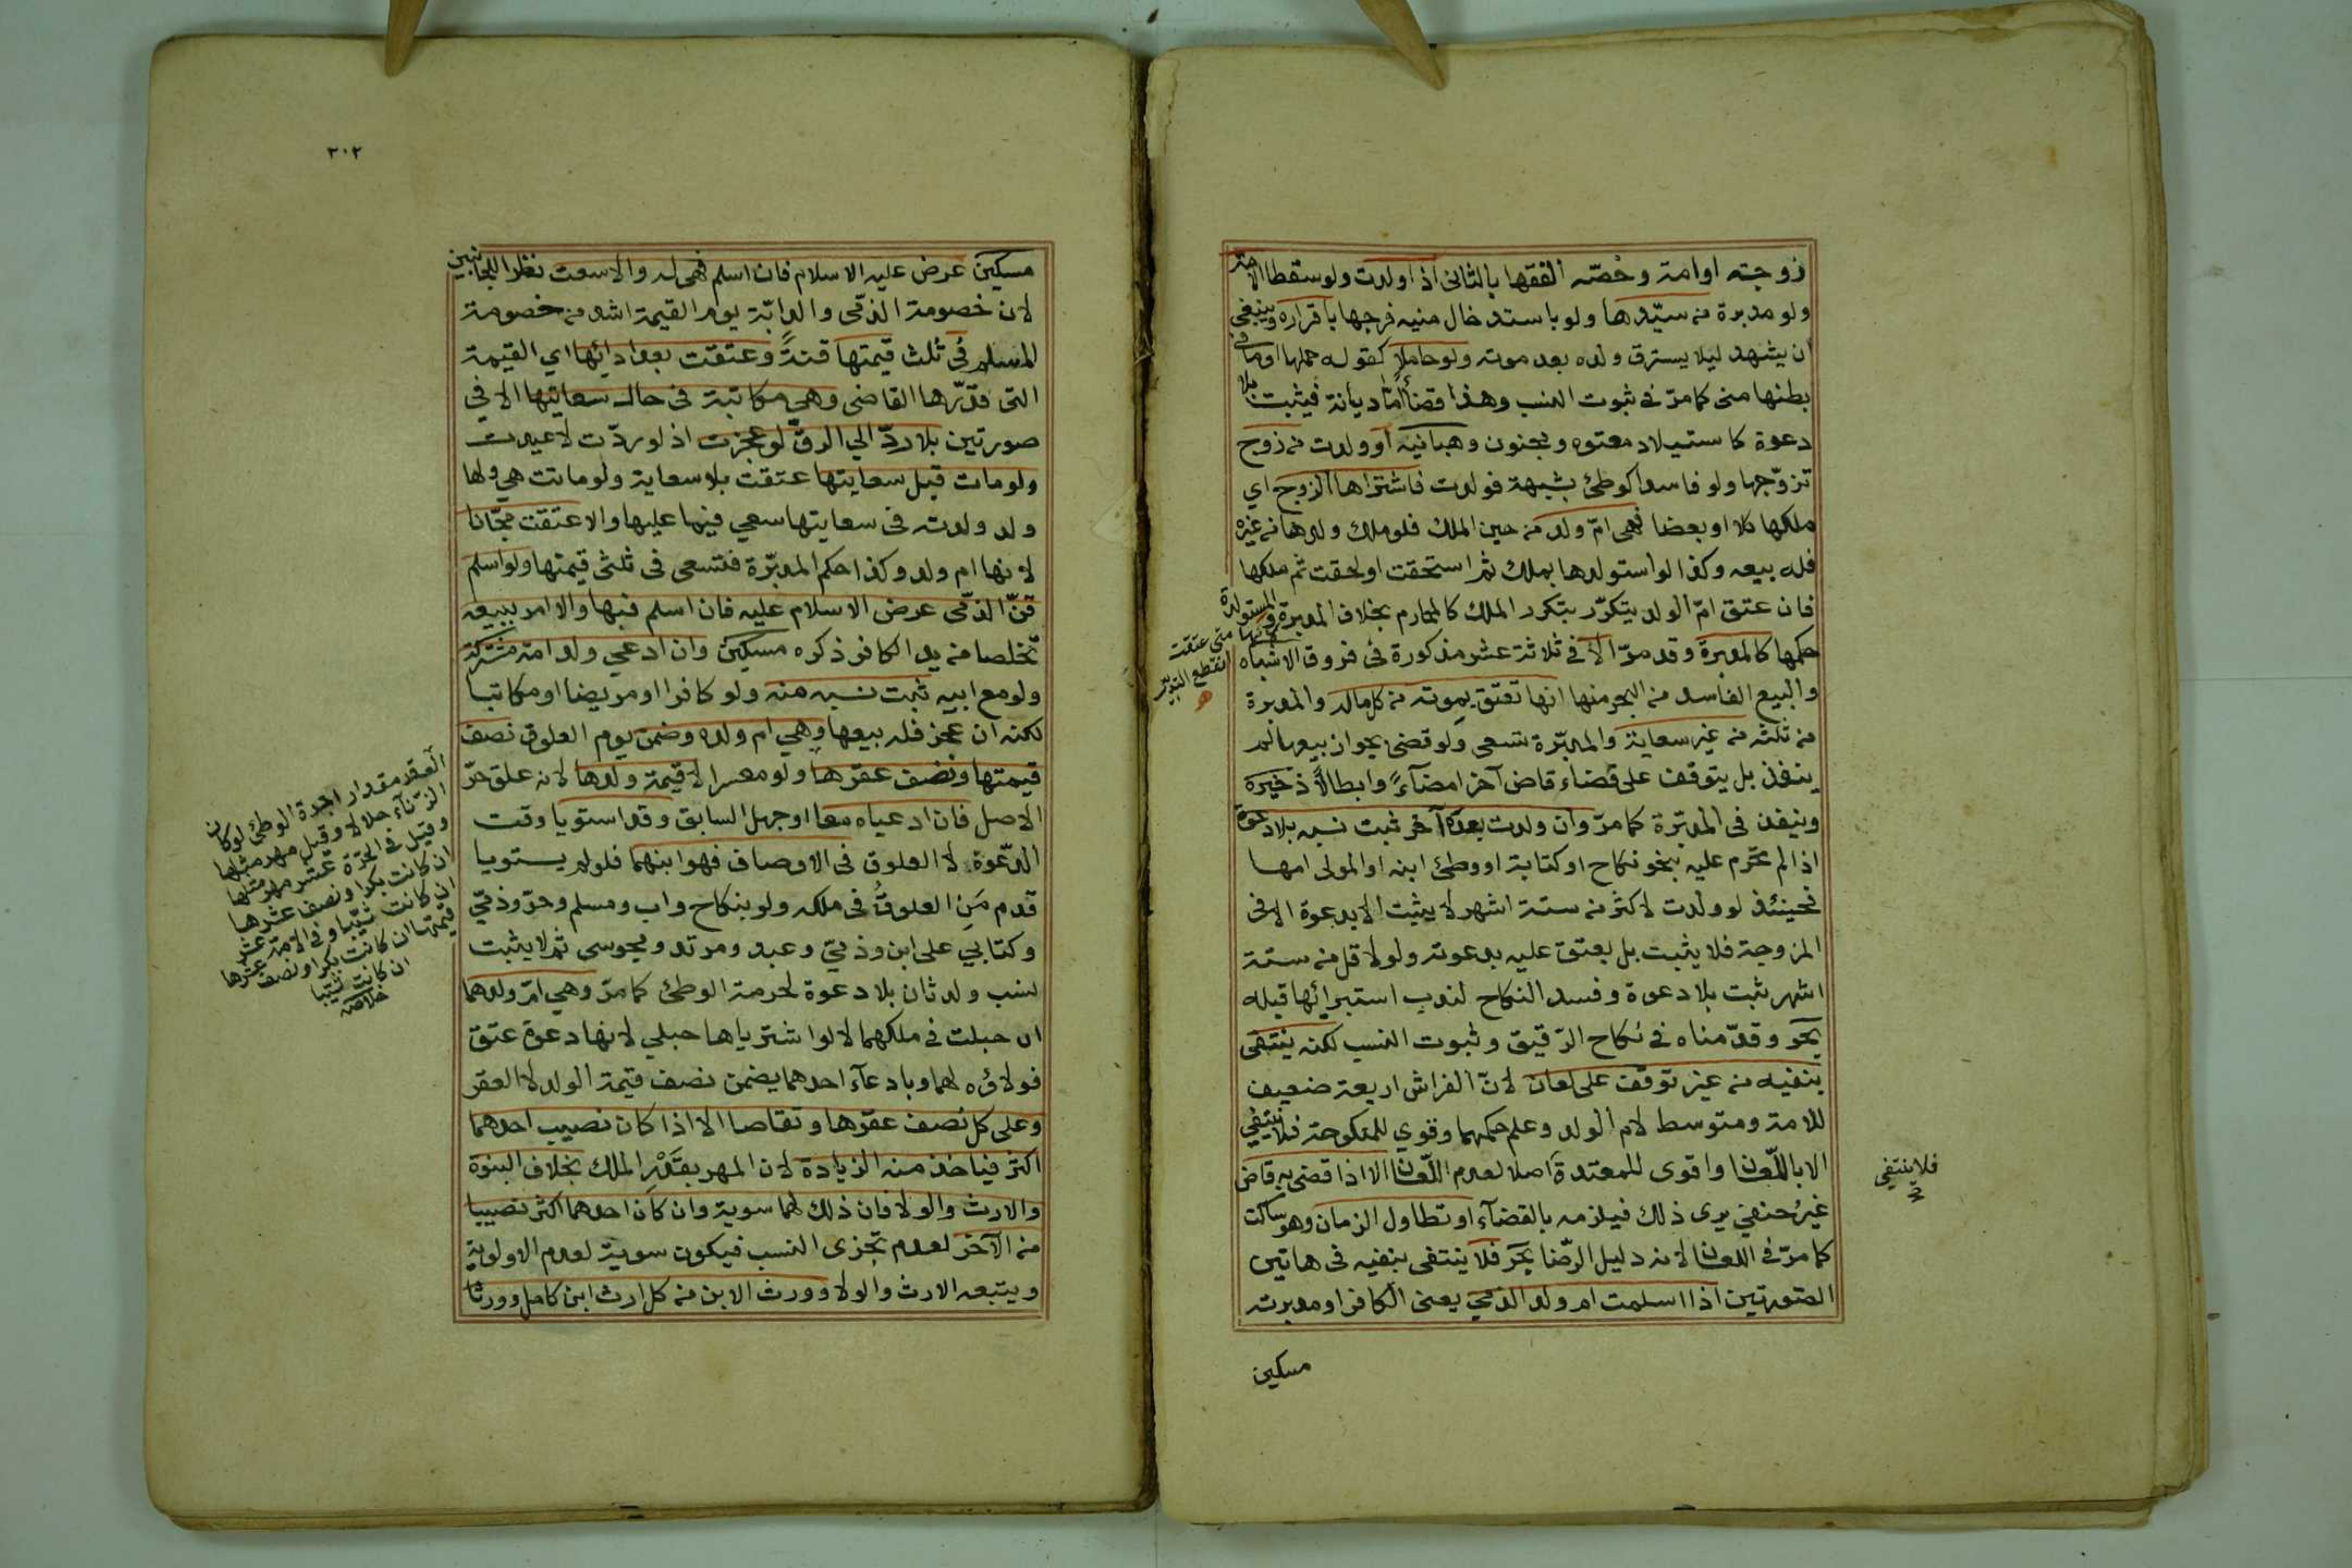 زوجته او امة وخصّه الفقها بالثاني اذا ولدت ولو سقطا الامة
ولو مدبرة من سيّدها ولو باستدخال منيه فرجها باقراره وينبغي
ان يشهد ليلا يسترق ولده بعد موته ولو حاملا كقوله حملها او ما في
بطنها مني كما مرّ في ثبوت النسب وهذا قضأ امّا ديانة فيثبت بلا
دعوة كاستيلاد معتوه ومجنون وهبانيه او ولدت من زوج
تزوّجها ولو فاسدا كوطئ بشبهة فولدت فاشتراها الزوج اي
ملكها كلا او بعضا فهي امّ ولد من حين الملك فلو ملك ولدها من غيره
فله بيعه وكذا لو استولدها بملك ثم استحقت او لحقت ثم ملكها
فان عتق امّ الولد يتكرّر بتكرر الملك كالمحارم بخلاف المدبرة والمستولدة
حكمها كالمدبرة وقد مرّ الا في ثلاثة عشر مذكورة في فروق الاشباه
والبيع الفاسد من البحر منها انها تعتق بموته من كل ماله والمدبرة
من ثلثه من غير سعاية والمدبّرة تسعى ولو قضى بجواز بيعها لم
ينفذ بل يتوقف على قضاء قاض آخر امضآءً وابطالاً ذخيرة
وينفذ في المدبّرة كما مرّ وان ولدت بعده آخر ثبت نسبه بلا دعوة
اذا لم تحرم عليه بنحو نكاح او كتابة او وطئ ابنه او المولى امها
فحينئذ لو ولدت لاكثر من ستة اشهر لا يثبت الا بدعوة الا في
المزوجة فلا يثبت بل يعتق عليه بدعوته ولو لاقل من ستة
اشهر ثبت بلا دعوة وفسد النكاح لندب استبرائها قبله
بحر وقدّمناه في نكاح الرّقيق وثبوت النسب لكنه ينتفي
بنفيه من غير توقف على لعان لانّ الفراش اربعة ضعيف
للامة ومتوسط لام الولد وعلم حكمهما وقوي للمنكوحة فلا ينتفي
الا باللّعان واقوى للمعتدة اصلا لعدم اللّعان الا اذا قضى به قاض
غيرُ حنفي يرى ذلك فيلزمه بالقضآء او تطاول الزمان وهو ساكت
كما مرّ في اللعان لانه دليل الرّضا بحر فلا ينتفي بنفيه في هاتين
الصّورتين اذا اسلمت ام ولد الذمي يعني الكافر او مدبرته
مسكين
فانها متى عتقت
انقطع التدبير
فلا ينتفي
٣٠٢
مسكين عرض عليه الاسلام فان اسلم فهي له والا سعت نظرا للجانبين
لان خصومة الذمّي والدابّة يوم القيمة اشد من خصومة
المسلم في ثلث قيمتها قنةً وعتقت بعد ادائها اي القيمة
التي قدّرها القاضي وهي مكاتبة في حال سعايتها الا في
صورتين بلا ردّ الي الرقّ لو عجزت اذ لو ردّت لاعيدت
ولو مات قبل سعايتها عتقت بلا سعاية ولو ماتت هي ولها
ولد ولدته في سعايتها سعي فيما عليها والا عتقت مجّانا
لانها ام ولد وكذا حكم المدبّرة فتسعى في ثلثي قيمتها ولو اسلم
قنّ الذمّي عرض الاسلام عليه فان اسلم فبها والا امر ببيعه
تخلصا من يد الكافر ذكره مسكين وان ادعي ولد امة مشتركة
ولو مع ابيه ثبت نسبه منه ولو كافرا او مريضا او مكاتبا
لكنه ان عجز فله بيعها وهي ام ولده وضمن يوم العلوق نصف
قيمتها ونصف عقرها ولو معسرا لا قيمة ولدها لانه علق حرّ
الاصل فان ادعياه معا او جهل السابق وقد استويا وقت
الدّعوة لا العلوق في الاوصاف فهو ابنهما فلو لم يستويا
قدم مَن العلوقُ في ملكه ولو بنكاح واب ومسلم وحرّ وذمّيّ
وكتابي على ابن وذمّيّ وعبد ومرتد ومجوسي ثم لا يثبت
نسب ولد ثان بلا دعوة لحرمة الوطئ كما مرّ وهي امّ ولدهما
ان حبلت في ملكهما لا لو اشترياها حبلي لانها دعوة عتق
فولاؤه لهما وبادعآء احدهما يضمن نصف قيمة الولد لا العقر
وعلى كل نصف عقرها وتقاصا الا اذا كان نصيب احدهما
اكثر فياخذ منه الزيادة لان المهر بقَدْر الملك بخلاف البنوة
والارث والولا فان ذلك لهما سوية وان كان احدهما اكثر نصيبا
من الآخر لعدم تجزي النسب فيكون سوية لعدم الاولوية
ويتبعه الارث والولا وورث الابن من كل ارث ابن كامل وورثا
العقر مقدار اجرة الوطئ لو كان
الزنآء حلالا وقيل مهر مثلها
وقيل في الحرّة عشر مهر مثلها
ان كانت بكرا ونصف عشرها
ان كانت ثيّبا وفي الامة عشر
قيمتها ان كانت بكرا ونصف عشرها
ان كانت ثيّبا
خلاصه